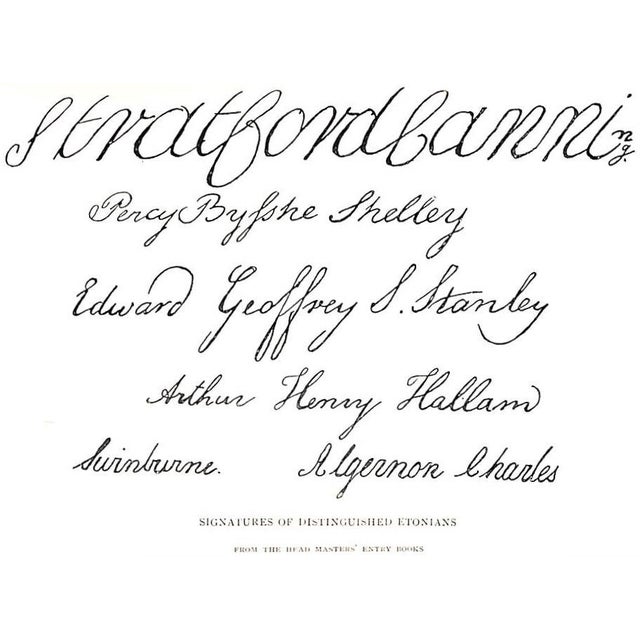 Stratford Canning.
Percy Byſshe Shelley
Edward Geoffrey S. Stanley
Arthur Henry Hallam
Swinburne. Algernon Charles
SIGNATURES OF DISTINGUISHED ETONIANS
FROM THE HEAD MASTERS' ENTRY BOOKS